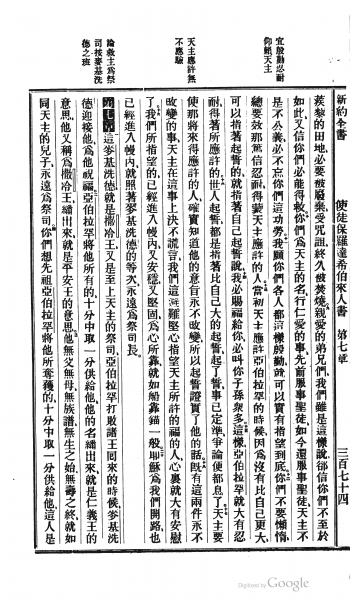 新約全書 使徒保羅達希伯來人書 第七章 三百七十四
宜殷勤忍耐
仰賴天主
天主應許無
不應驗
論救主爲祭
司按麥基洗
德之班
蒺藜的田地必要被廢棄受咒詛終久被焚燒親愛的弟兄們我們雖是這樣說卻信你們不至於
如此又信你們必能得救你們爲天主的名行仁愛的事先前服事聖徒如今還服事聖徒天主不
是不公義必不忘你們這功勞我願你們各人都這樣殷勤就可以實有指望到底你們不要懶惰
總要效那篤信忍耐得蒙天主應許的人當初天主應許亞伯拉罕的時候因爲沒有比自己更大
可以指著起誓的就指著自己起誓說我必賜福給你必叫你子孫衆多這樣亞伯拉罕就大有忍
耐得著所應許的世人起誓都是指著比自己大的起誓起了誓事已定準爭論便都息了天主要
使那將來得應許的人確實知道他的意旨永不改變所以起誓證實了他的話旣有這兩件永不
改變的事天主在這事上決不謊言我們這避難堅心指望天主所許的福的人心裏就大有安慰
了我們所指望的已經進入幔內又安穩又堅固爲心所靠就如船靠錨一般耶穌爲我們開路也
已經進入幔內就照著麥基洗德的等次永遠爲祭司長
第七章 這麥基洗德就是撒冷王又是至上天主的祭司亞伯拉罕打敗諸王回來的時候麥基洗
德迎接他爲他祝福亞伯拉罕將他所有的十分中取一分供給他他的名繙出來就是仁義王的
意思他又稱爲撒冷王繙出來就是平安王的意思他無父無母無族譜無生之始無壽之終就如
同天主的兒子永遠爲祭司你們想先祖亞伯拉罕將他所奪獲的十分中取一分供給他這人是
Digitized by Google